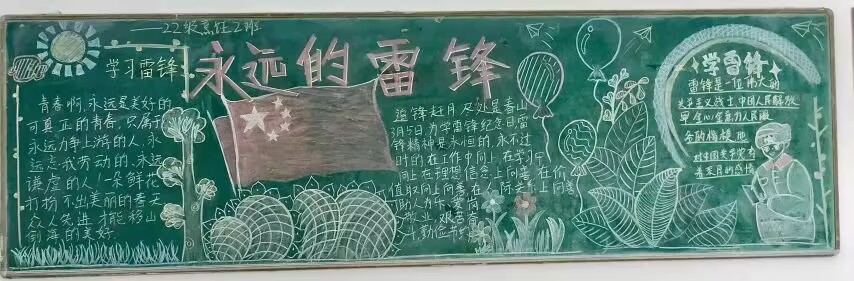 ——22级烹饪2班
学习雷锋
永远的雷锋
青春啊,永远是美好的
可真正的青春,只属于
永远力争上游的人,永
远忘我劳动的,永远
谦虚的人!一朵鲜花
打扮不出美丽的春天
众人先进才能移山
倒海的美好
追锋赶月 尽处是春山
3月5日为学雷锋纪念日雷
锋精神是永恒的,永不过
时的 在工作中向上 在学习中
向上在理想信念上向善 在价
值取向上向善在人际关系上向善
助人为乐 爱岗
敬业 艰苦奋
斗勤俭节约
学雷锋
雷锋是一位伟大的
共产主义战士 中国人民解放
军 全心全意为人民服
务的楷模 他
对中国共产党有
着
的感情